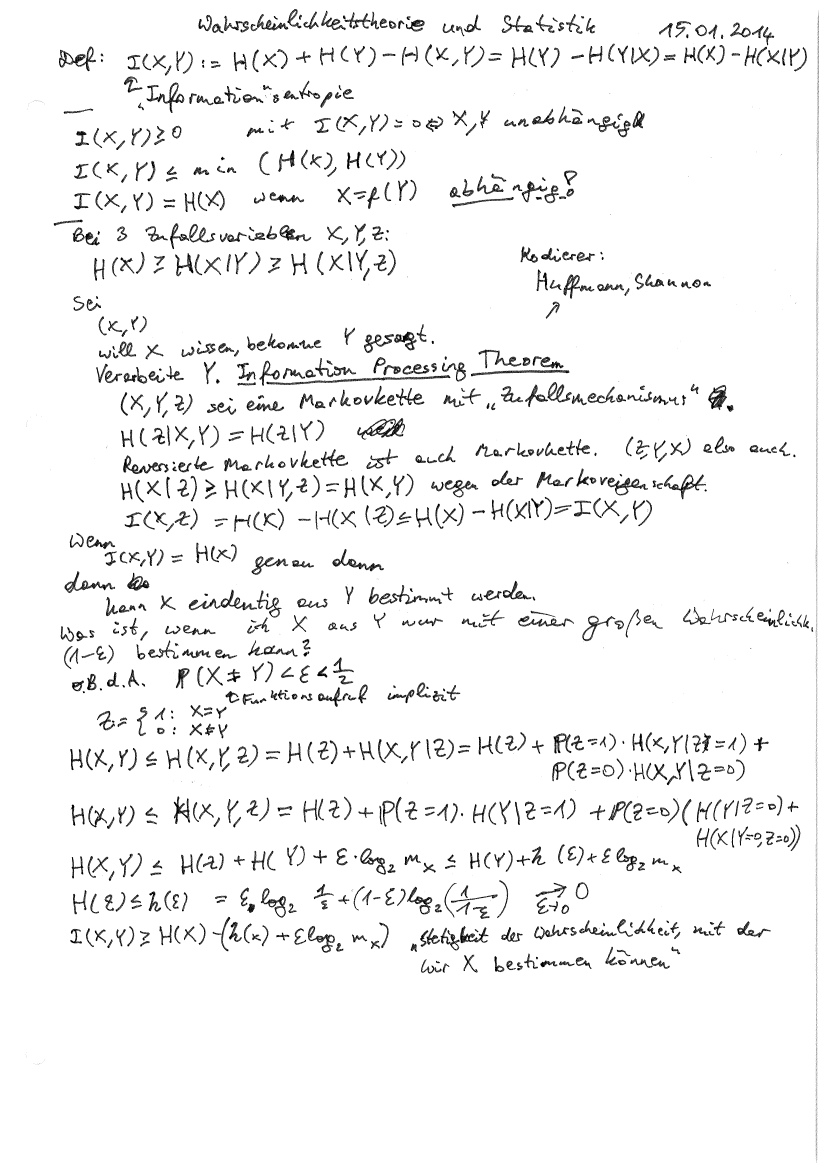 Wahrscheinlichkeitstheorie und Statistik 15.01.2014
Def: I(X,Y) := H(X) + H(Y) - H(X,Y) = H(Y) - H(Y|X) = H(X) - H(X|Y)
↑ „Information"sentropie
I(X,Y) ≥ 0 mit I(X,Y) = 0 ⇔ X,Y unabhängig
I(X,Y) ≤ min (H(X), H(Y))
I(X,Y) = H(X) wenn X = f(Y) abhängig!
Bei 3 Zufallsvariablen X,Y,Z:
H(X) ≥ H(X|Y) ≥ H(X|Y,Z)
Kodierer:
Huffmann, Shannon
↗
Sei
(X,Y)
will X wissen, bekomme Y gesagt.
Verarbeite Y. Information Processing Theorem
(X,Y,Z) sei eine Markovkette mit „Zufallsmechanismus" Z.
H(Z|X,Y) = H(Z|Y)
Reversierte Markovkette ist auch Markovkette. (Z,Y,X) also auch.
H(X|Z) ≥ H(X|Y,Z) = H(X,Y) wegen der Markoveigenschaft.
I(X,Z) = H(X) - H(X|Z) ≤ H(X) - H(X|Y) = I(X,Y)
Wenn
I(X,Y) = H(X) genau dann
dann
kann X eindeutig aus Y bestimmt werden.
Was ist, wenn ich X aus Y nur mit einer großen Wahrscheinlichk.
(1-ε) bestimmen kann?
o.B.d.A. ℙ(X ≠ Y) < ε < 1/2
↑ Funktionsaufruf implizit
Z = { 1: X=Y
0: X≠Y
H(X,Y) ≤ H(X,Y,Z) = H(Z) + H(X,Y|Z) = H(Z) + ℙ(Z=1)·H(X,Y|Z=1) +
ℙ(Z=0)·H(X,Y|Z=0)
H(X,Y) ≤ H(X,Y,Z) = H(Z) + ℙ(Z=1)·H(Y|Z=1) + ℙ(Z=0)(H(Y|Z=0) +
H(X|Y=0,Z=0))
H(X,Y) ≤ H(Z) + H(Y) + ε·log₂ m_X ≤ H(Y) + h(ε) + ε log₂ m_X
H(Z) ≤ h(ε) = ε·log₂ 1/ε + (1-ε)log₂(1/(1-ε)) →_{ε→0} 0
I(X,Y) ≥ H(X) - (h(x) + ε log₂ m_X) „Stetigkeit der Wahrscheinlichkeit, mit der
wir X bestimmen können"